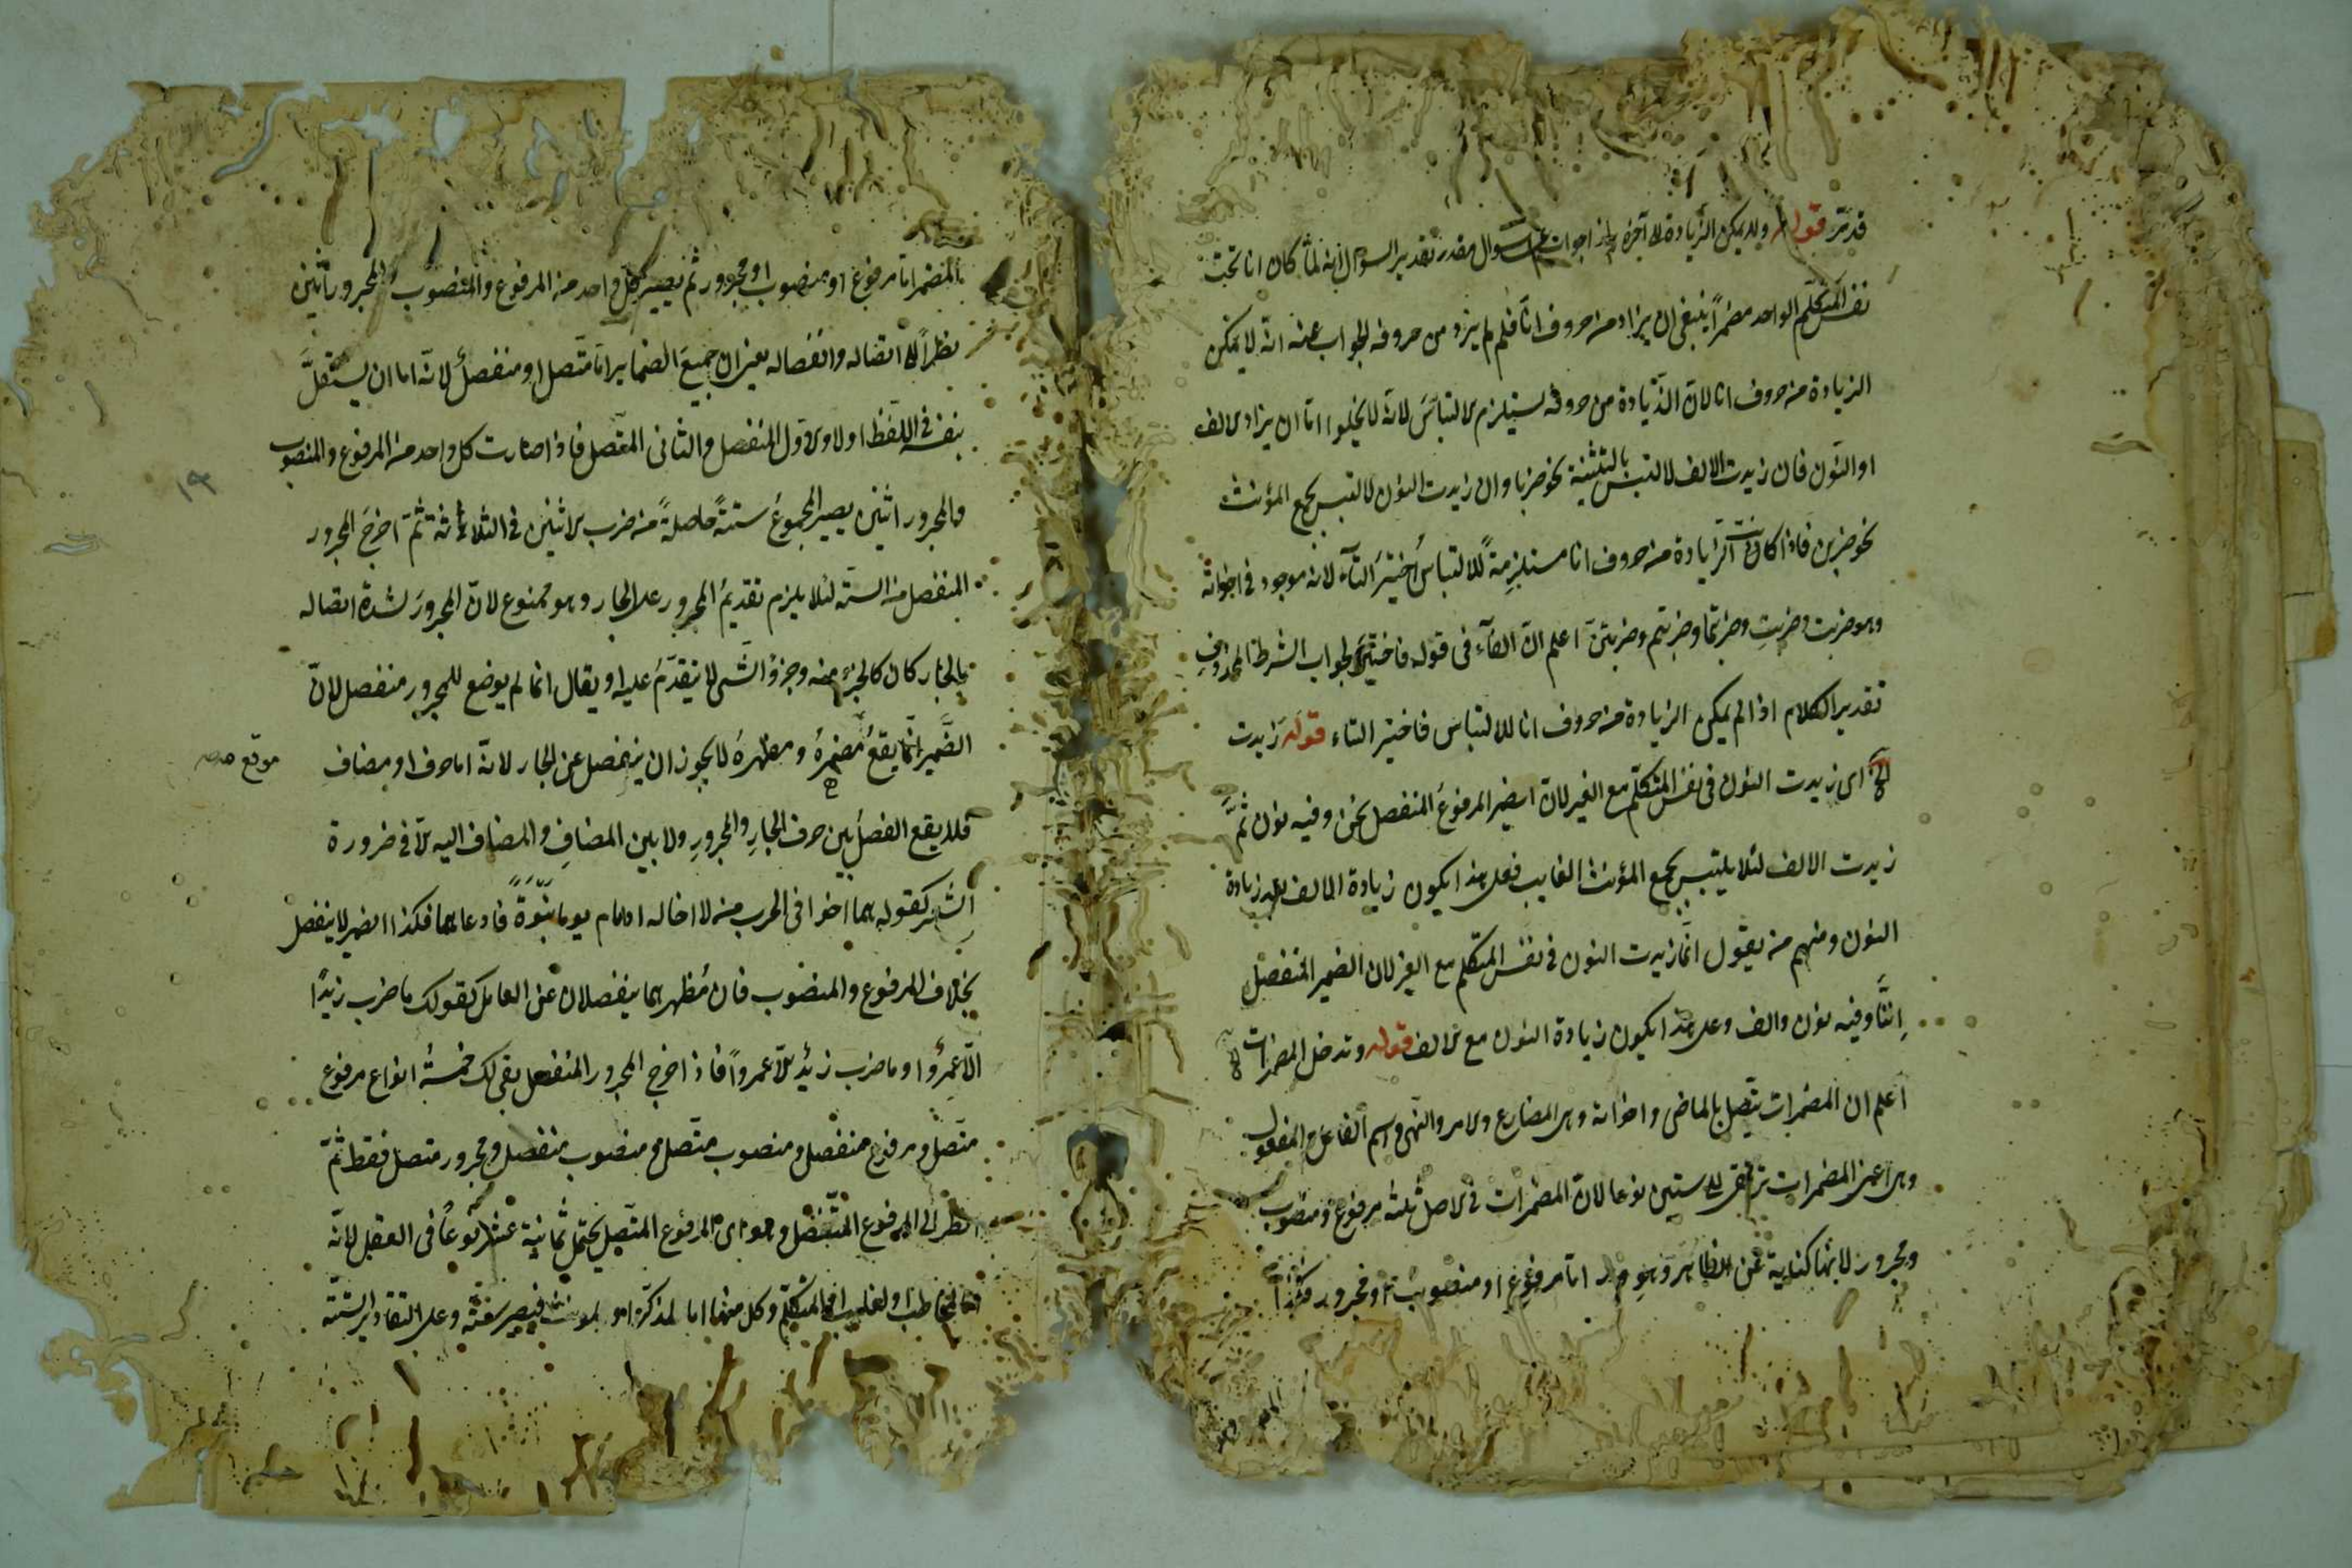 قد مر قوله ولا يمكن الزيادة الى آخره هذا جواب عن سوال مقدر تقدير السوال انه لما كان انا تحت
نفس المتكلم الواحد مضمرا ينبغى ان يزاد من حروف انا فلم لم يزد من حروفه الجواب عنه انه لا يمكن
الزيادة من حروف انا لان الزيادة من حروفه يستلزم الالتباس لانه لا يخلوا اما ان يزاد الالف
او النون فان زيدت الالف لالتبس بالتثنية نحو ضربا وان زايدت النون لالتبس بجمع المؤنث
نحو ضربن فاذا كانت الزيادة من حروف انا مستلزمة للالتباس اختير التاء لانه موجود فى اخواته
وهو ضربت وضربت وضربتما وضربتم وضربتن اعلم ان الفاء فى قوله فاختير لجواب الشرط المحذوف
تقدير الكلام اذا لم يمكن الزيادة من حروف انا للالتباس فاختير التاء قوله زايدت
الخ اى زيدت النون فى نفس المتكلم مع الغير لان الضمير المرفوع المنفصل نحن وفيه نون ثم
زيدت الالف لئلا يلتبس بجمع المؤنث الغايب فعلى هذا يكون زيادة الالف بعد زيادة
النون ومنهم من يقول انما زيدت النون فى نفس المتكلم مع الغير لان الضمير المنفصل
اننا وفيه نون والف وعلى هذا يكون زيادة النون مع الالف قوله وتدخل المضمرات الخ
اعلم ان المضمرات يتصل بالماضى واخواته وهى المضارع والامر والنهى واسم الفاعل والمفعول
وهى اعنى المضمرات ترتقى الى ستين نوعا لان المضمرات فى الاصل ثلثة مرفوع ومنصوب
ومجرور لانها كناية عن الظاهر وهو اما مرفوع او منصوب او مجرور فكذا
المضمر اما مرفوع او منصوب او مجرور ثم يصير كل واحد من المرفوع والمنصوب والمجرور اثنين
نظرا الى اتصاله وانفصاله يعنى ان جميع الضماير اما متصل او منفصل لانه اما ان يستقل
بنفسه فى اللفظ اولا والاول المنفصل والثانى المتصل فاذا صارت كل واحد من المرفوع والمنصوب
والمجرور اثنين يصير المجموع ستة حاصلة من ضرب الاثنين فى الثلاثة ثم اخرج المجرور
المنفصل من الستة لئلا يلزم تقديم المجرور على الجار وهو ممنوع لان المجرور لشدة اتصاله
بالجار كان كالجزء منه وجزؤ الشى لا يتقدم عليه او يقال انما لم يوضع للمجرور منفصل لان
الضمير انما يقع مضمره ومظهره لا يجوز ان ينفصل عن الجار لانه اما حرف او مضاف
موقع صح
فلا يقع الفصل بين حرف الجار والمجرور ولا بين المضاف والمضاف اليه الا فى ضرورة
الشعر كقوله هما اخوا فى الحرب من لا اخا له اذا خاف يوما نبوة فادعاهما فكذا الضمير لا ينفصل
بخلاف المرفوع والمنصوب فان مظهرهما ينفصلان عن العامل كقولك ما ضرب زيدا
الا عمرو او ما ضرب زيد الا عمروا فاذا اخرج المجرور المنفصل بقى لك خمسة انواع مرفوع
متصل ومرفوع منفصل ومنصوب متصل ومنصوب منفصل ومجرور متصل فقط ثم
انظر الى المرفوع المتصل وهو اى المرفوع المتصل يحتمل ثمانية عشر نوعا فى العقل لانه
اما لمخاطب او لغايب او لمتكلم وكل منها اما لمذكر او لمونث فيصير ستة وعلى التقادير الستة
١٣